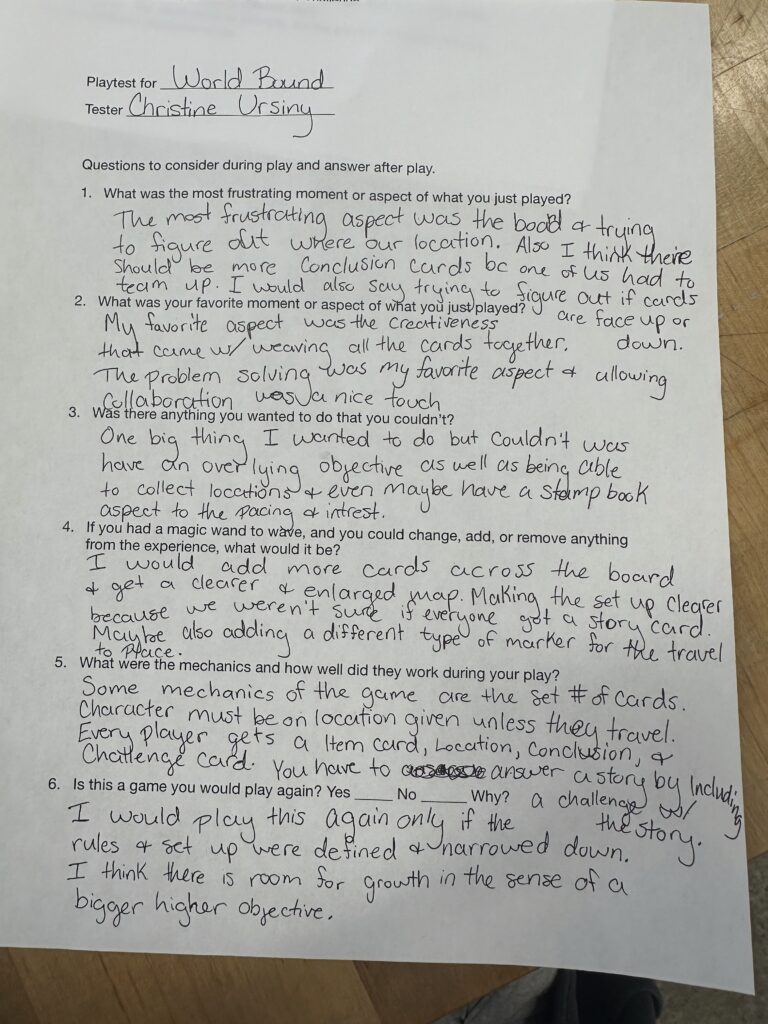 Playtest for World Bound
Tester Christine Ursiny
Questions to consider during play and answer after play.
1. What was the most frustrating moment or aspect of what you just played?
The most frustrating aspect was the board & trying
to figure out where our location. Also I think there
should be more conclusion cards bc one of us had to
team up. I would also say trying to figure out if cards
are face up or
down.
2. What was your favorite moment or aspect of what you just played?
My favorite aspect was the creativeness
that came w/ weaving all the cards together.
The problem solving was my favorite aspect & allowing
collaboration was a nice touch
3. Was there anything you wanted to do that you couldn't?
One big thing I wanted to do but couldn't was
have an over lying objective as well as being able
to collect locations & even maybe have a stamp book
aspect to the pacing & intrest.
4. If you had a magic wand to wave, and you could change, add, or remove anything
from the experience, what would it be?
I would add more cards across the board
& get a clearer & enlarged map. Making the set up clearer
because we weren't sure if everyone got a story card.
Maybe also adding a different type of marker for the travel
to place.
5. What were the mechanics and how well did they work during your play?
Some mechanics of the game are the set # of cards.
Character must be on location given unless they travel.
Every player gets a Item card, Location, Conclusion, &
Challenge card. You have to answer a story by Including
a challenge w/
the story.
6. Is this a game you would play again? Yes ____ No ____ Why?
I would play this again only if the
rules & set up were defined & narrowed down.
I think there is room for growth in the sense of a
bigger higher objective.